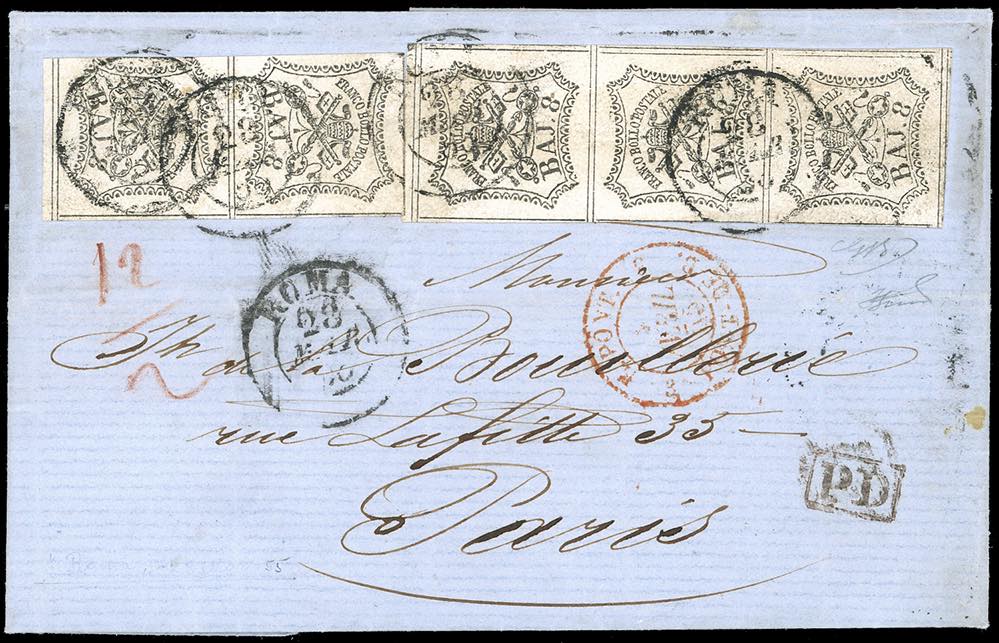 FRANCO BOLLO POSTALE BAJ 8
FRANCO BOLLO POSTALE BAJ 8
FRANCO BOLLO POSTALE BAJ 8
FRANCO BOLLO POSTALE BAJ 8
FRANCO BOLLO POSTALE BAJ 8
12
ROMA
23
MAR
Monsieur
Jh de la Bouillerie
rue Lafitte 35
Paris
P.D
55